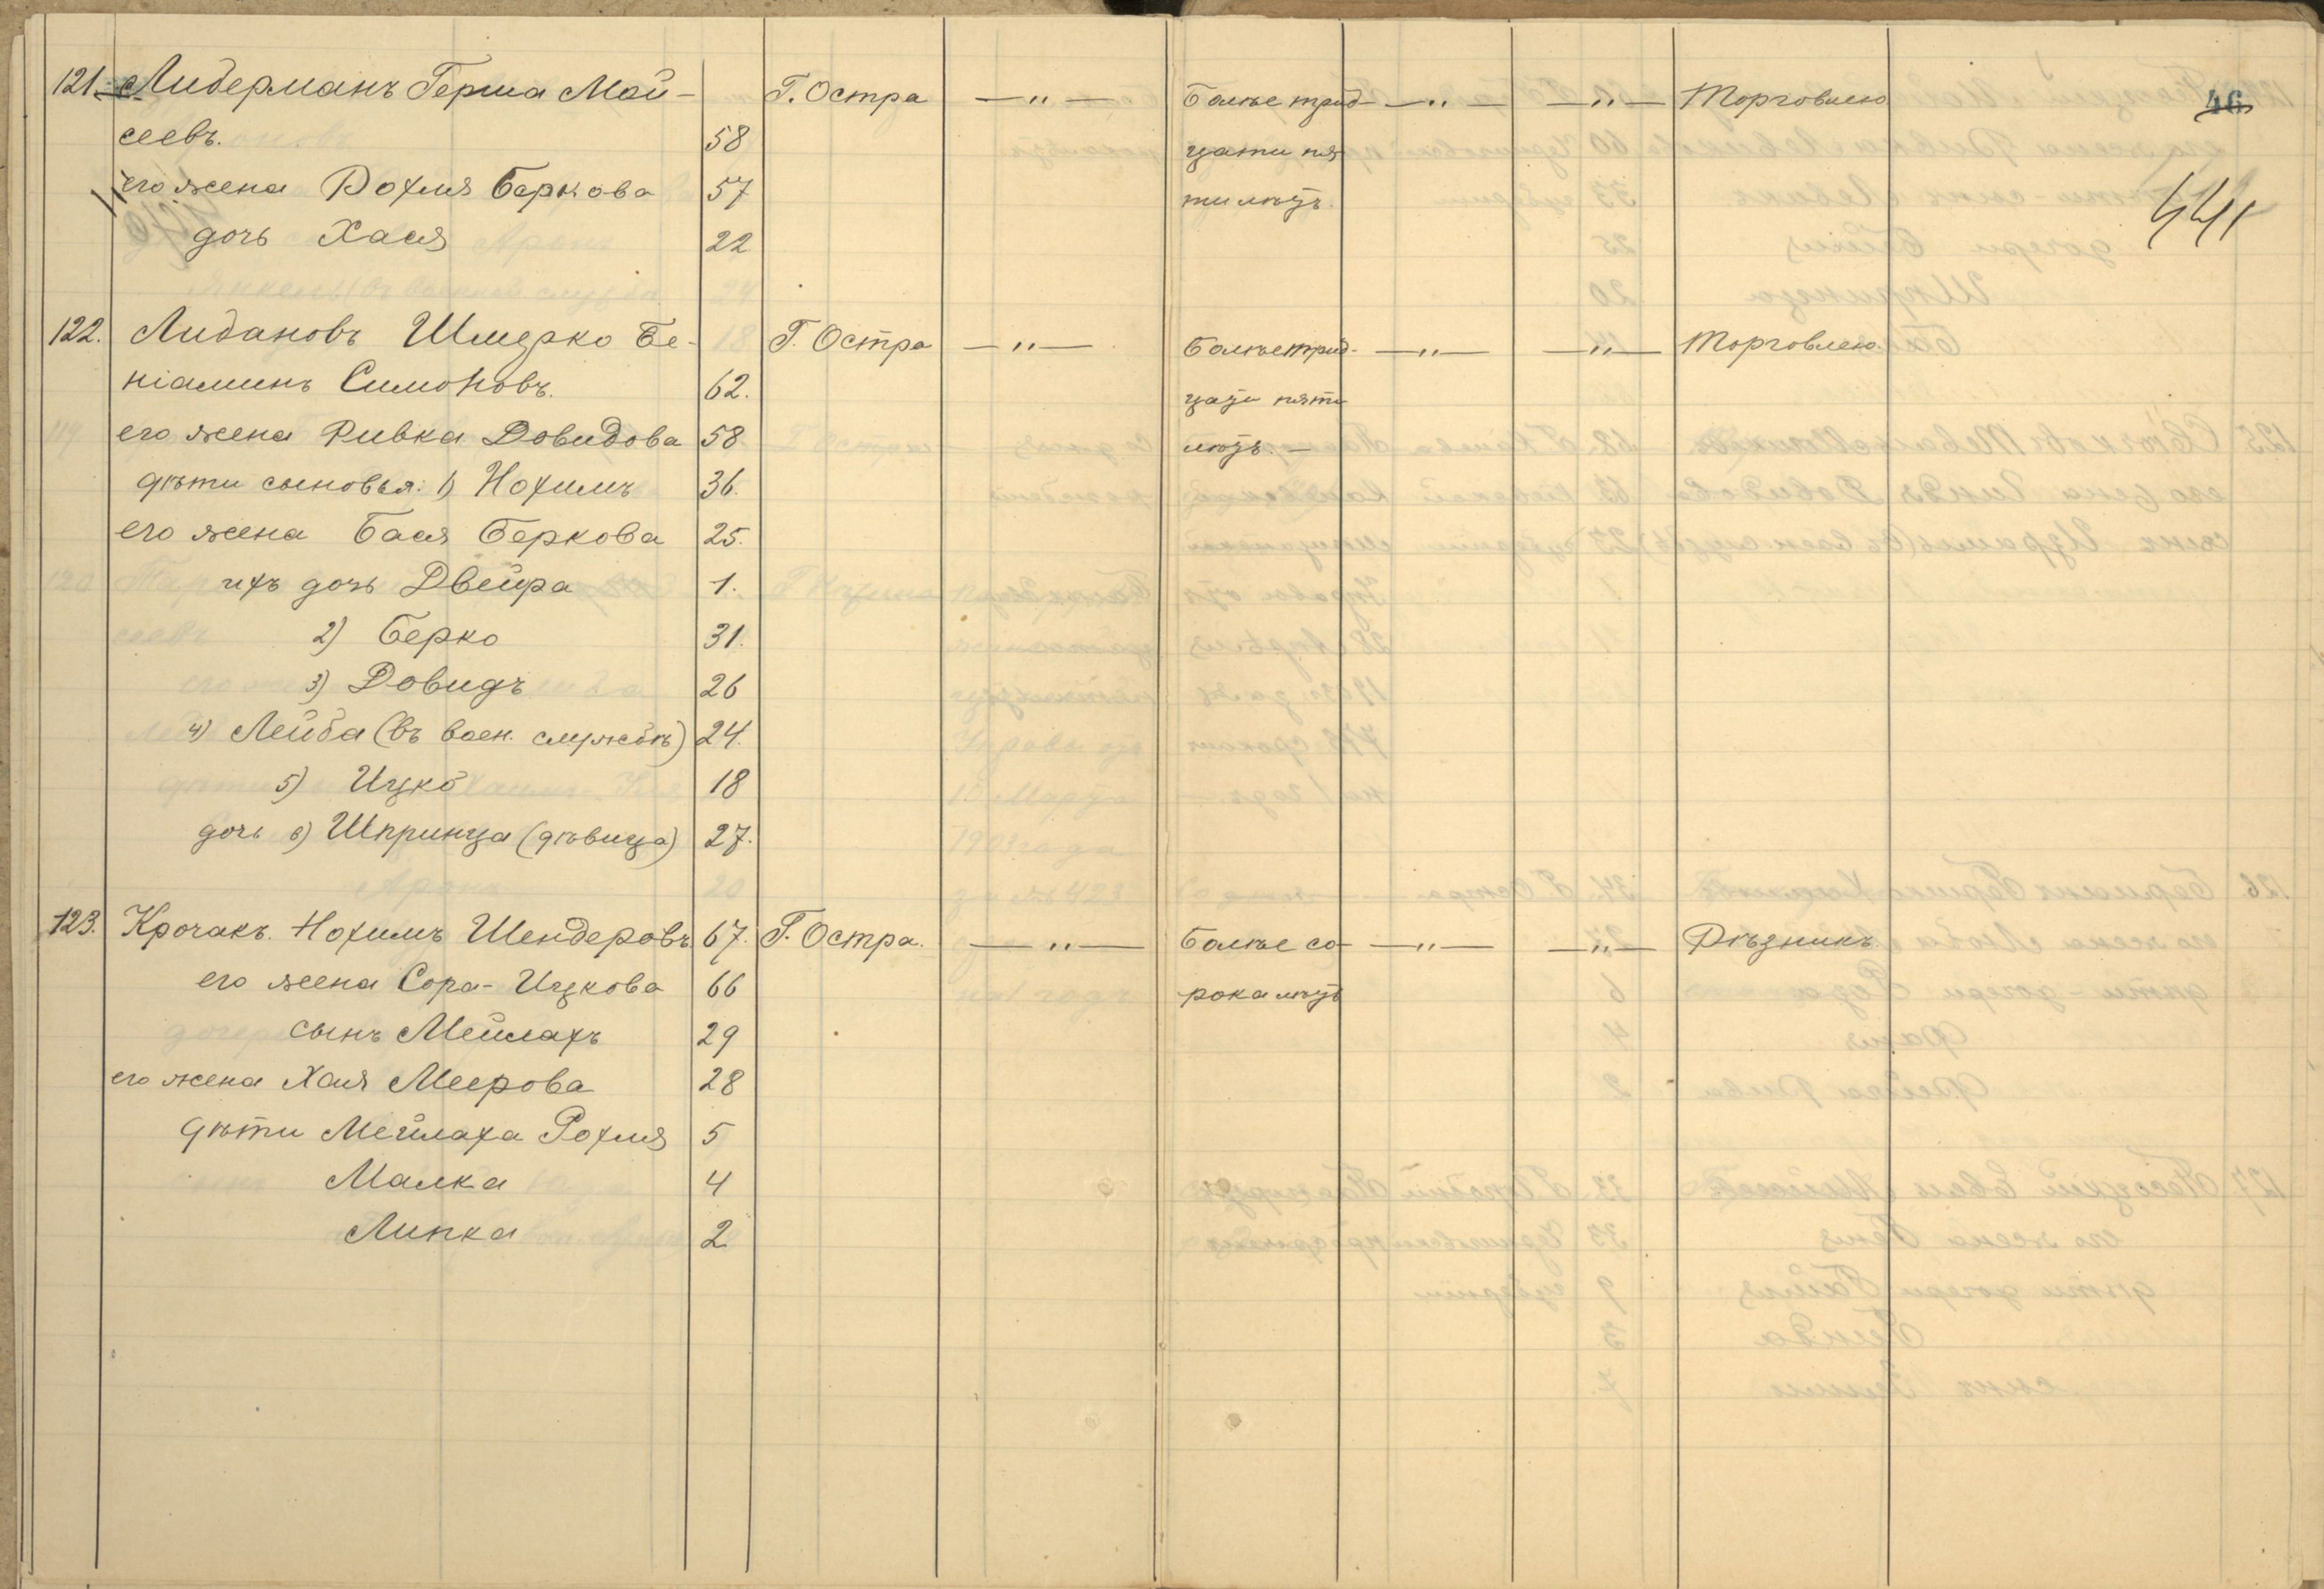 121. Либерманъ Герша Мой- Г. Остра —"— Болѣе трид- —"— —"— Торговлею 46
сеевъ. 58 цати пя
его жена Рохля Беркова 57 ти лѣтъ. 441
дочь Хася 22
122. Лидановъ Шмерко Бе- Г. Остра —"— Болѣе трид- —"— —"— Торговлею
ніаминъ Симоновъ. 62. цати пяти
его жена Ривка Довидова 58 лѣтъ. —
дѣти сыновья: 1) Нохимъ 36.
его жена Бася Беркова 25.
ихъ дочь Двейра 1.
2) Берко 31.
3) Довидъ 26
4) Лейба (въ воен. службѣ) 24.
5) Ицко 18
дочь 6) Шпринца (дѣвица) 27.
123. Крочакъ. Нохимъ Шендеровъ 67. Г. Остра. —"— Болѣе со- —"— —"— Рѣзникъ
его жена Сора-Ицкова 66 рока лѣтъ
сынъ Мейлахъ 29
его жена Хая Меерова 28
дѣти Мейлаха Рохля 5
Малка 4
Липка 2